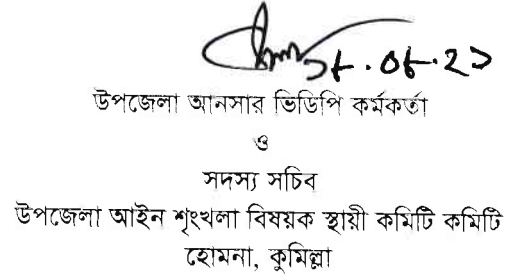 উপজেলা আনসার ভিডিপি কর্মকর্তা
ও
সদস্য সচিব
উপজেলা আইন শৃংখলা বিষয়ক স্থায়ী কমিটি কমিটি
হোমনা, কুমিল্লা